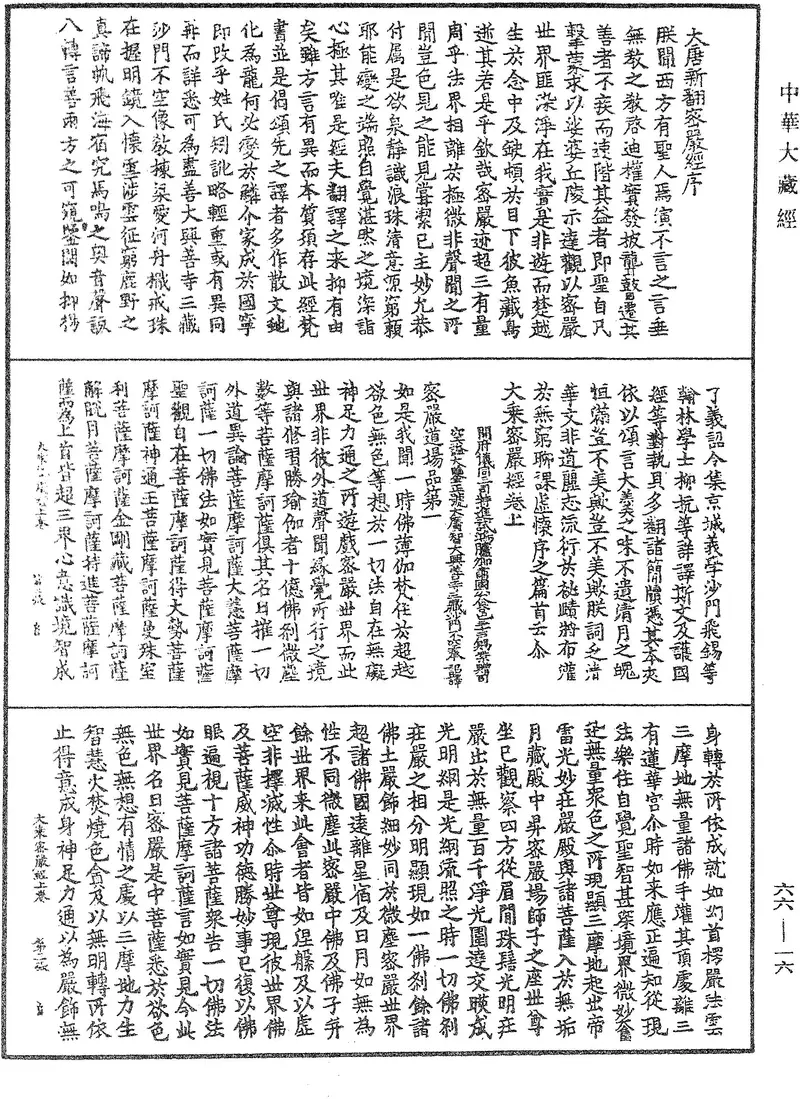 中華大藏經
大唐新翻密嚴經序
朕聞西方有聖人焉演不言之言垂
無教之教啓迪權實發披聾瞽遷其
善者不疾而速階其益者即聖自凡
擊蒙求以娑婆丘陵示達觀以密嚴
世界匪染淨在我實是非遊而楚越
生於念中及鈌頓於目下彼魚藏鳥
逝其若是乎欽哉密嚴迹超三有量
周乎法界相離於極微非聲聞之所
聞豈色見之能見嘗潔己主妙允恭
付屬是欲泉靜識浪珠清意源窮賴
耶能變之端照自覺湛然之境深詣
心極其唯是經夫翻譯之來抑有由
矣雖方言有異而本質須存此經梵
書並是偈頌先之譯者多作散文虵
化為龍何必變於鱗介家成於國寧
即改乎姓氏矧訛略輕重或有異同
再而詳悉可為盡善大興善寺三藏
沙門不空像教棟梁愛河舟檝戒珠
在握明鏡入懷雪涉雲征窮鹿野之
真諦帆飛海宿究馬鳴之奧音聲該
八轉言善兩方之可窺鑒闊如抑揚
了義詔令集京城義學沙門飛錫等
翰林學士柳抗等詳譯斯文及護國
經等對執貝多翻諸簡牘憑其本夾
依以頌言大羹美之味不遺清月之魄
恒滿豈不美歟豈不美歟朕詞乏清
華文非道麗志流行於祇賾將布灌
於無窮聊課虛懷序之篇首云尒
大乘密嚴經卷上
開府儀同三司特進試鴻臚卿肅國公食邑三千戶賜紫贈司
空謚大鑒正號大廣智大興善寺三藏沙門不空奉 詔譯
密嚴道場品第一
如是我聞一時佛薄伽梵住於超越
欲色無色等想於一切法自在無礙
神足力通之所遊戲密嚴世界而此
世界非彼外道聲聞緣覺所行之境
與諸修習勝瑜伽者十億佛剎微塵
數等菩薩摩訶薩俱其名曰摧一切
外道異論菩薩摩訶薩大慧菩薩摩
訶薩一切佛法如實見菩薩摩訶薩
聖觀自在菩薩摩訶薩得大勢菩薩
摩訶薩神通王菩薩摩訶薩曼殊室
利菩薩摩訶薩金剛藏菩薩摩訶薩
解脫月菩薩摩訶薩持進菩薩摩訶
薩而為上首皆超三界心意識境智成
身轉於所依成就如幻首楞嚴法雲
三摩地無量諸佛手灌其頂處離三
有蓮華宮尒時如來應正遍知從現
法樂住自覺聖智甚深境界微妙奮
迅無量衆色之所現顯三摩地起出帝
雷光妙莊嚴殿與諸菩薩入於無垢
月藏殿中昇密嚴場師子之座世尊
坐已觀察四方從眉間珠髻光明莊
嚴出於無量百千淨光圍遶交映成
光明網是光網流照之時一切佛剎
莊嚴之相分明顯現如一佛剎餘諸
佛土嚴飾細妙同於微塵密嚴世界
超諸佛國遠離星宿及日月如無為
性不同微塵此密嚴中佛及佛子并
餘世界來此會者皆如涅槃及以虛
空非擇滅性尒時世尊現彼世界佛
及菩薩威神功德勝妙事已復以佛
眼遍視十方諸菩薩衆告一切佛法
如實見菩薩摩訶薩言如實見今此
世界名曰密嚴是中菩薩悉於欲色
無色無想有情之處以三摩地力生
智慧火焚燒色貪及以無明轉所依
止得意成身神足力通以為嚴飾無
大乘密嚴經上卷　第二張
六六—一六